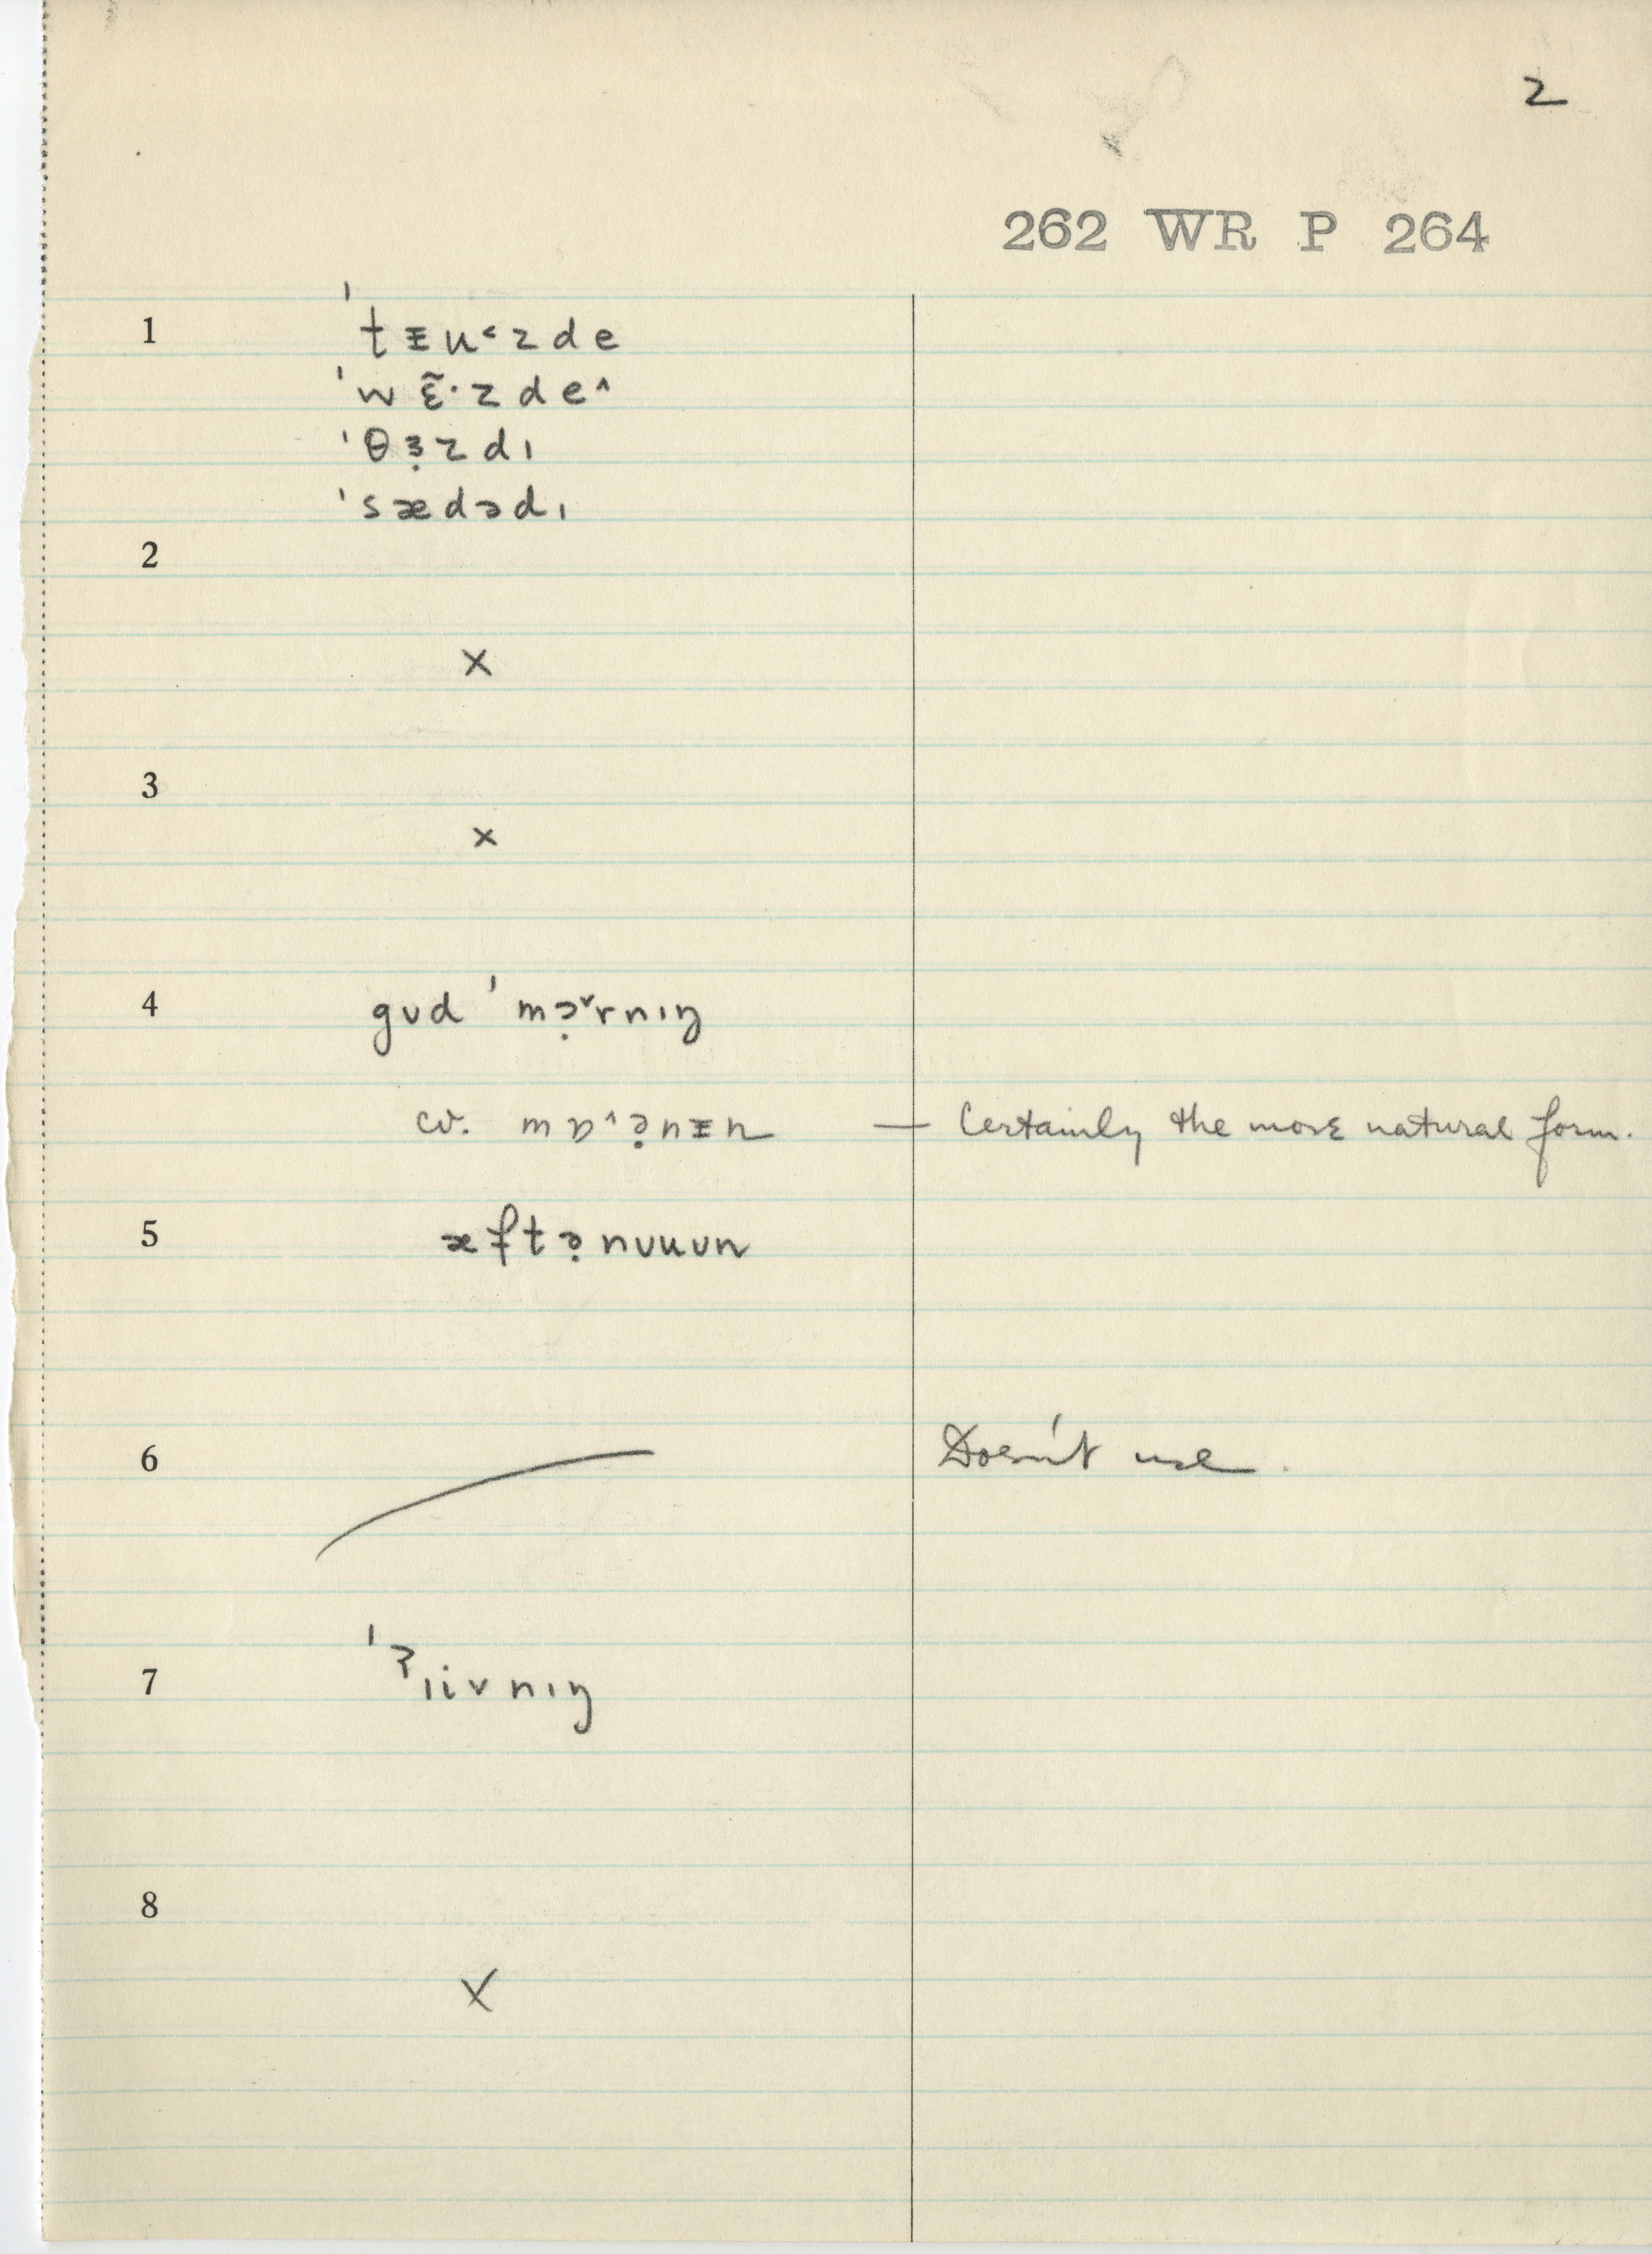 2
262 WR P 264
1 ˈtᵻu˂zde
ˈwɛ̃·zde^
ˈθɜ̣zdɪ
ˈsædədɪ
2
×
3
×
4 gʊd ˈmɔ̣˅rnɪŋ
cv. mɒ^ə̣nᵻn — Certainly the more natural form.
5 æftə̣nʊuʊn
6 Doesn't use.
7 ˈʔɪivnɪŋ
8
×